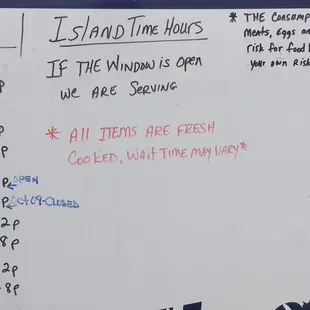 Island Time Hours
If The Window is Open
We are Serving
* All Items are Fresh
Cooked, Wait Time May Vary*
* The Consump
Meats, Eggs an
risk for food
Your own Risk
p
p
p
p OPEN
p Oct 09-Closed
2p
8p
2p
8p